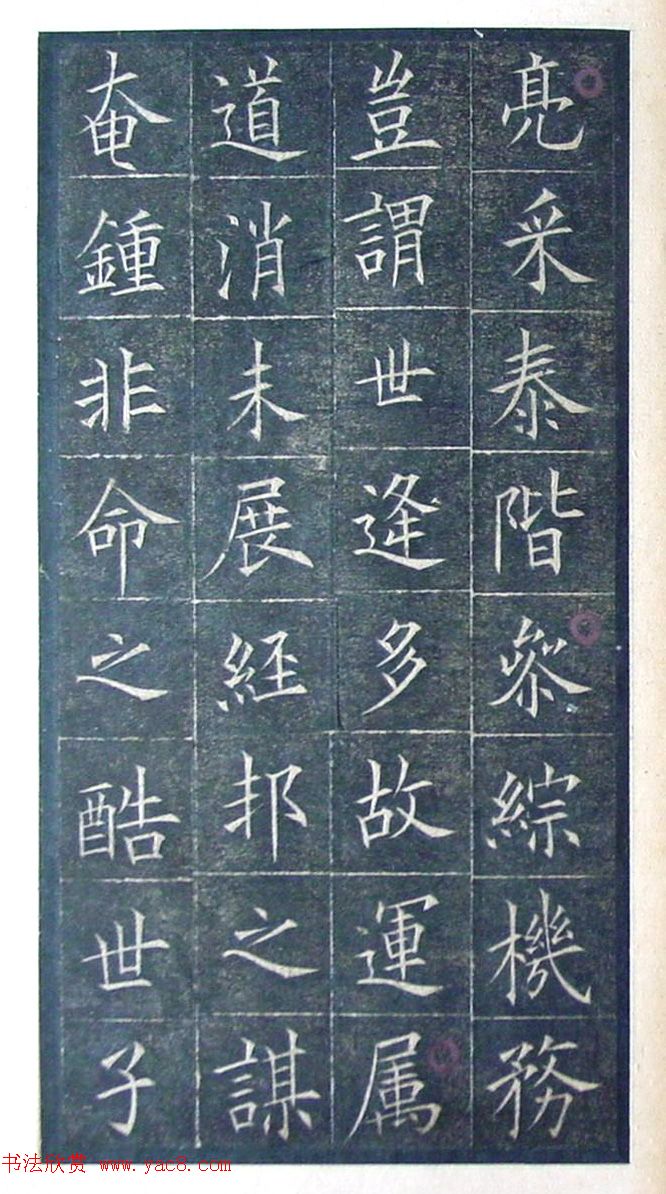 亮采泰階叅綜機務
豈謂世逄多故運属
道消未展經邦之謀
奄鍾非命之酷世子
书法欣赏 www.yac8.com